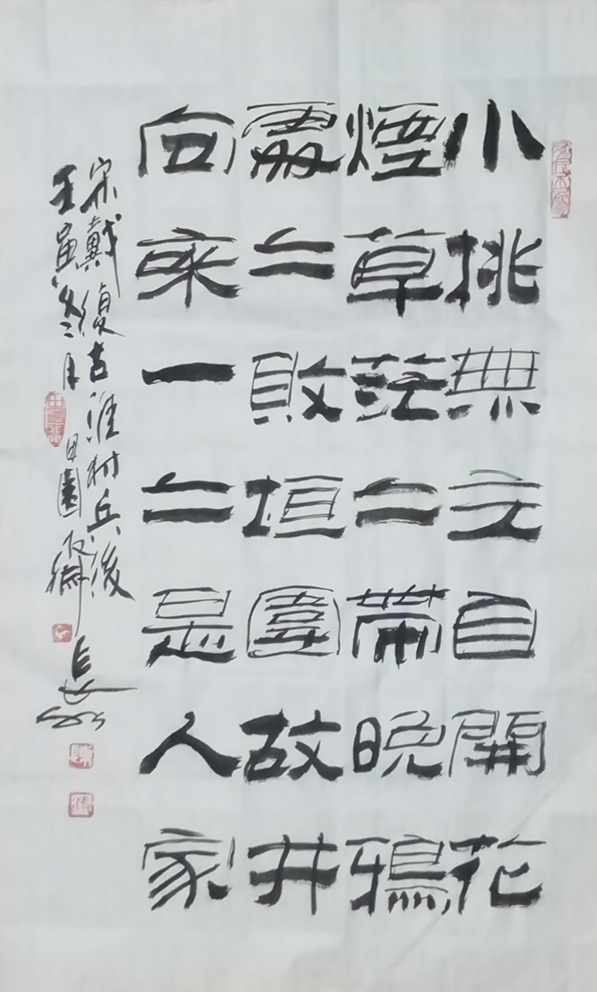 小桃無主自開花
煙草茫〻帶晚鴉
處〻敗垣圍故井
向來一〻是人家
宋戴復古淮村兵後
壬寅冬月